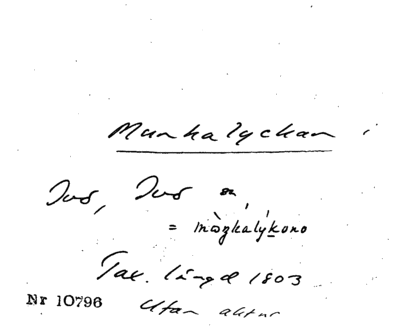 Munkalyckan i
Tvs, Tvs sn,
= mòŋkalýkono
Tax. längd 1803
Nr 10796 Utan aktur